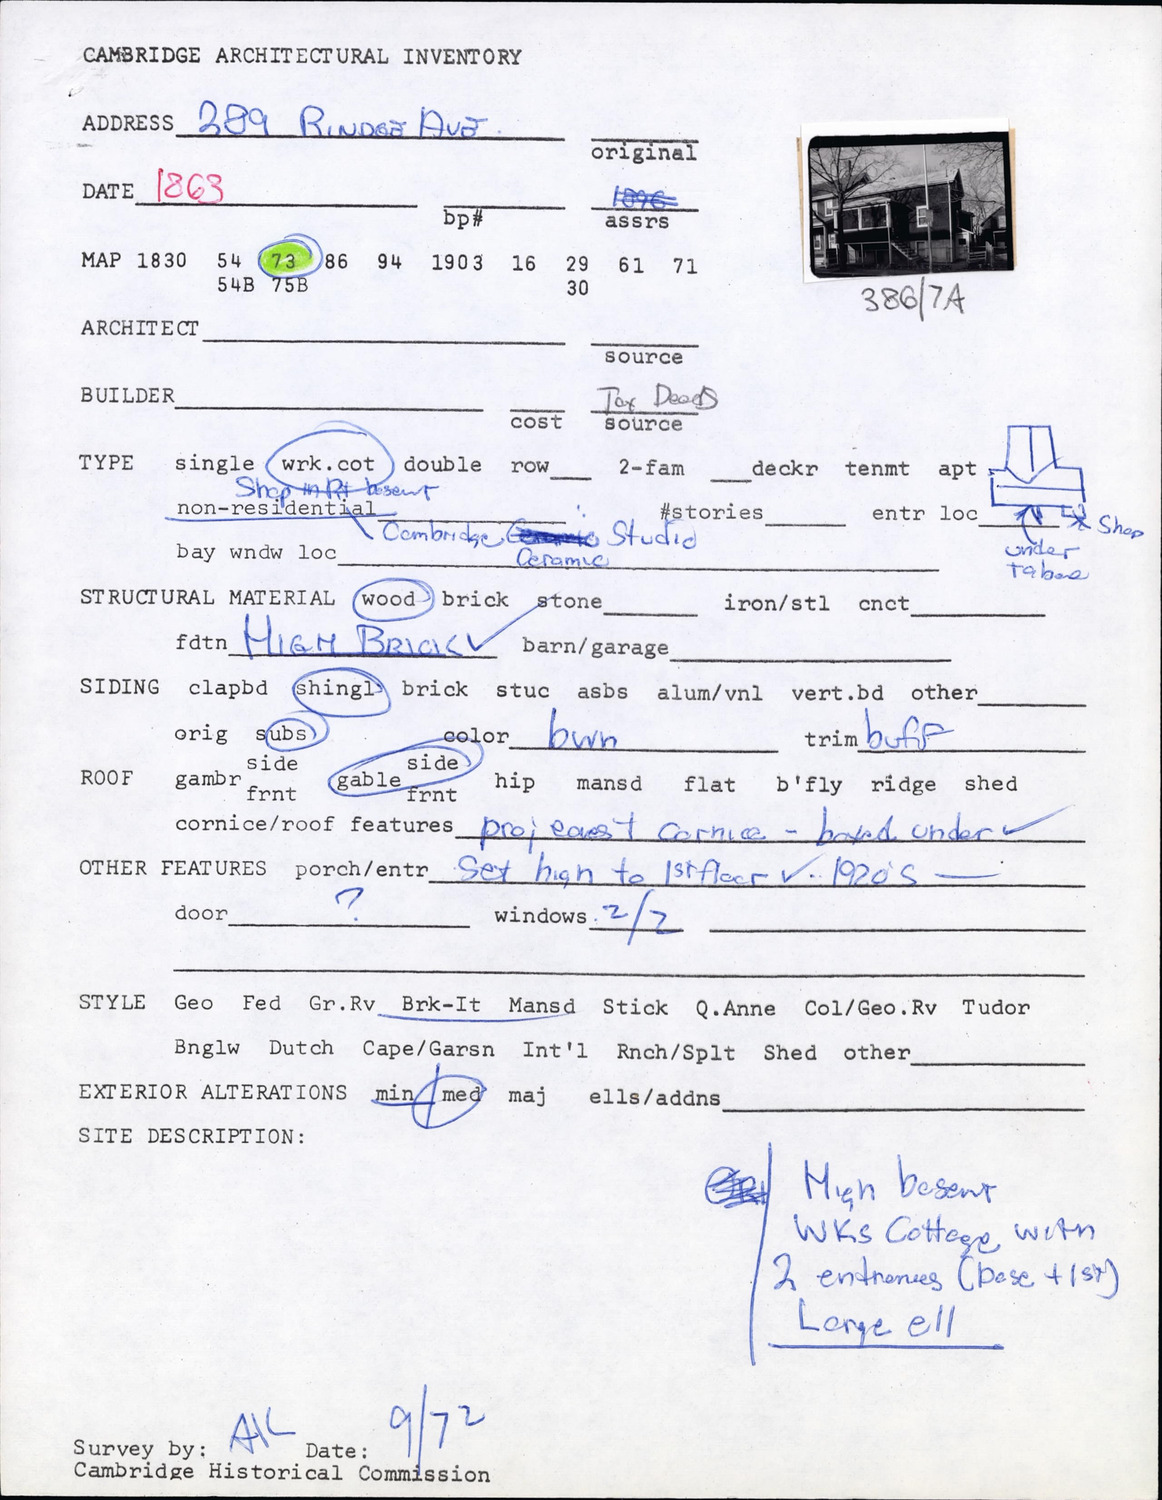 CAMBRIDGE ARCHITECTURAL INVENTORY
ADDRESS 289 RINDGE AVE.
original
DATE 1863 1896
bp# assrs
MAP 1830 54 73 86 94 1903 16 29 61 71
54B 75B 30
386/7A
ARCHITECT
source
BUILDER Tax Deeds
cost source
TYPE single wrk.cot double row 2-fam deckr tenmt apt
Shop in Rt basemt
non-residential #stories entr loc
Shop
Cambridge Studio
Ceramic
under
bay wndw loc
STRUCTURAL MATERIAL wood brick stone iron/stl cnct
fdtn HIGH BRICK ✓ barn/garage
SIDING clapbd shingl brick stuc asbs alum/vnl vert.bd other
orig subs color bwn trim buff
side side
ROOF gambr gable hip mansd flat b'fly ridge shed
frnt frnt
cornice/roof features proj eaves + cornice - boxed under ✓
OTHER FEATURES porch/entr Set high to 1st floor ✓ .. 1920's —
door ? windows 2/2
STYLE Geo Fed Gr.Rv Brk-It Mansd Stick Q.Anne Col/Geo.Rv Tudor
Bnglw Dutch Cape/Garsn Int'l Rnch/Splt Shed other
EXTERIOR ALTERATIONS min med maj ells/addns
SITE DESCRIPTION:
High basemt
WKs Cottage with
2 entrances (base + 1st)
Large ell
Survey by: AK Date: 9/72
Cambridge Historical Commission